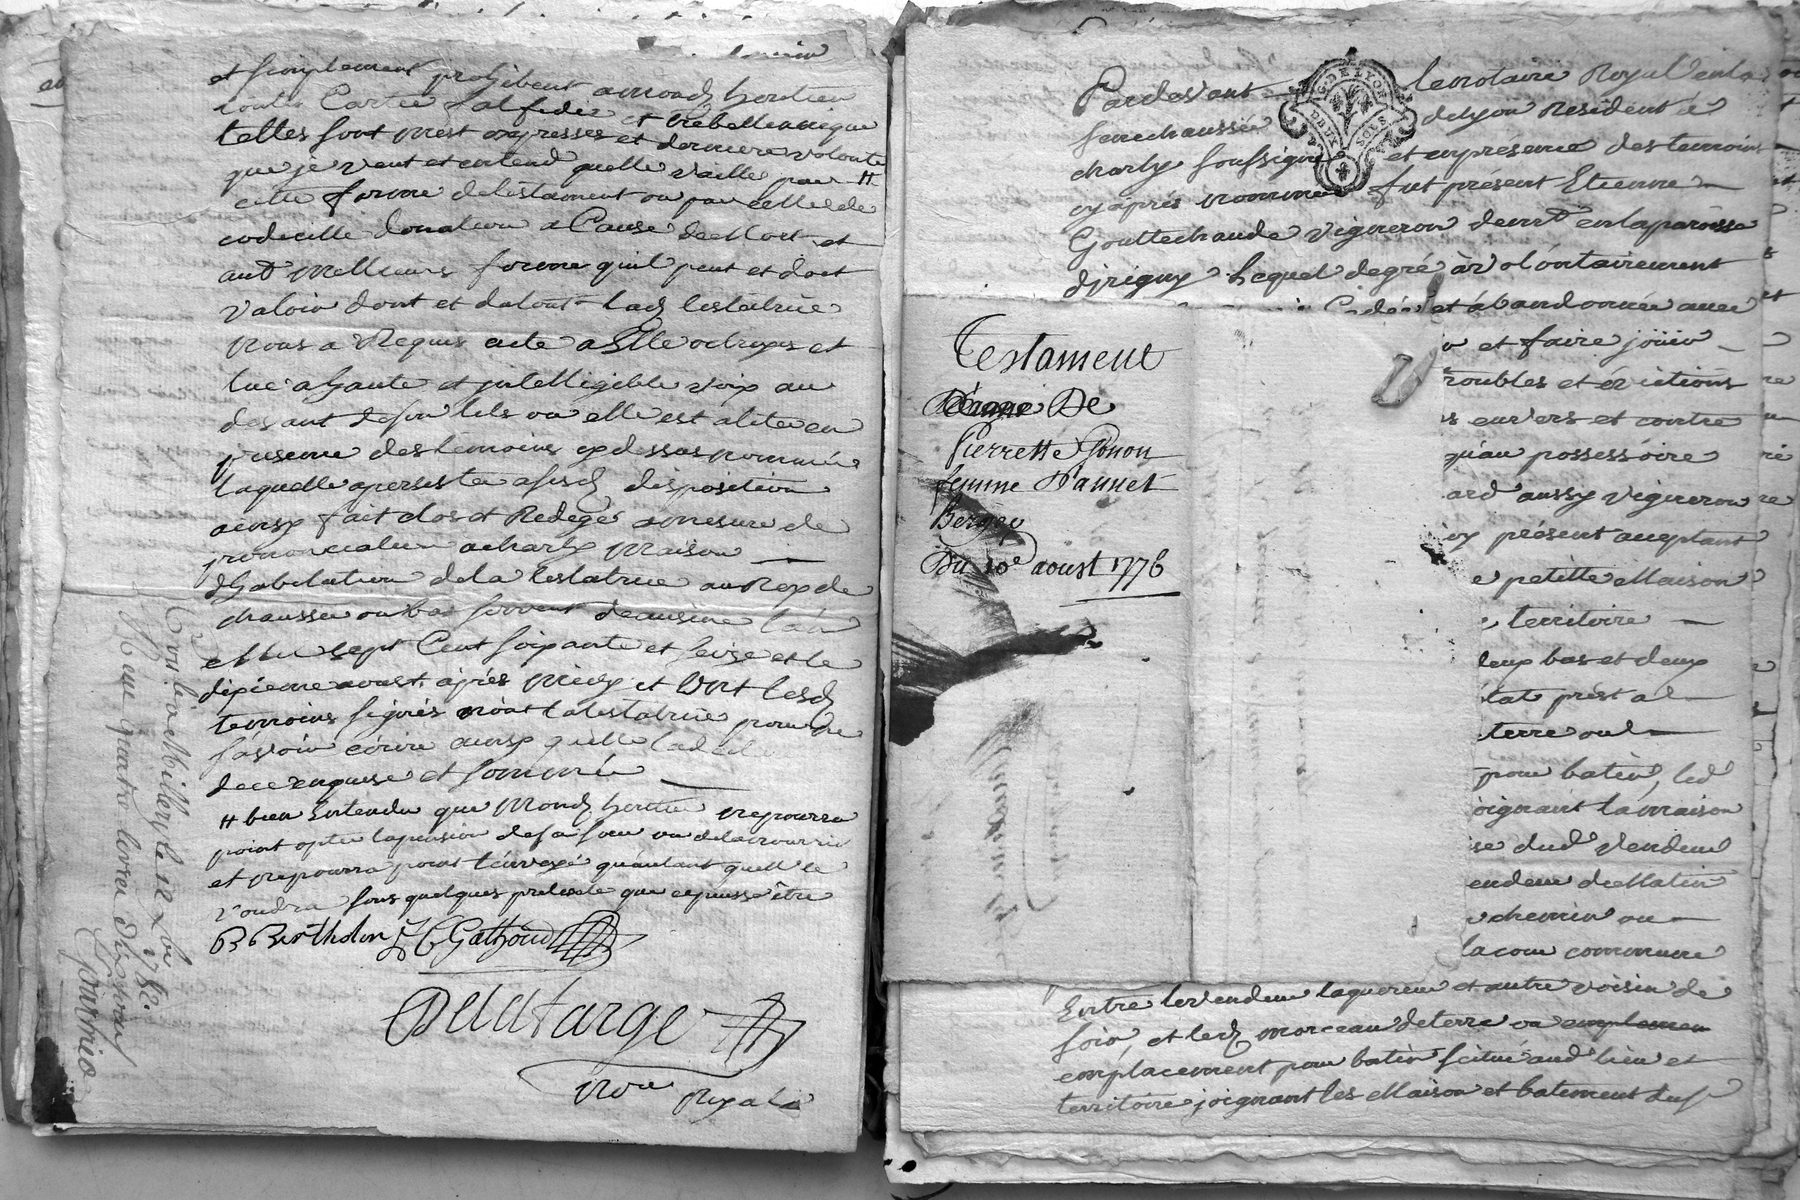 et simplement prohibent a mond heritier
toutte Carte falfidie et trebellianique
telles sont mest expresses et derniere volonté
que je veut et entend quelle vaille par #
cette forme de testament ou par celle de
codicille donation a Cause de Mort et
aut meilleure forme quil peut et doit
valoir dont et du tout lad testatrice
nous a Requis acte a Elle octroyés et
lue a haute et intelligible voix au
devant de son lits ou elle est alitée en
presence des temoins cy dessus nommés
laquelle a persisté a sesd disposition
ainsy fait clos et Redegé a mesure de
prononciation a charly maison
d'habitation de la testatrice au Rez de
chaussée ou bas servent de cuisine l'an
Mil sept Cent soixante et seize et le
dixieme aoust après midy et ont lesd
temoins signés non la testatrice pour ne
sàvoir écrire ainsy quelle la declaré
de ce enquise et sommée
# bien Entendu que Mond heritier ne pourra
point opter la pension de sa sœur ou de la nourrir
et ne pourra point l'en vexé qu'autant quelle le
voudra sous quelques pretexte que ce puisse être
B Bertholon C Gathoud
Delafarge
No.re Royal
Con.lé a Millery le 12
1782
Reçu quatre livres
Testament
De
Pierrette Gonon
femme D'annet
Bergey
Du 10e aoust 1776
G. DE LYON
DEUX SOUS
Pardevant le notaire Royal en la
senechaussée de Lyon Resident a
charly soussigné et en présence des temoins
cy àprés nommés fut présent Etienne
Gouttechaude vigneron demt en la paroisse
d'jrigny Lequel de gré à volontairement
Cedé et abandonnée avec
et faire joüir
troubles et évictions
envers et contre
qu'au possessoire
ard aussy vigneron
cy présent acceptant
e petitte Maison
territoire
deux bas et deux
état prést al
terre oul
pour batir, led
joignant la maison
dud Vendeur
endeur de Matin
chemin ou
la cour commune
Entre le vendeur laquereur et autre voisin de
soir, et led morceau de terre ou emplamen
emplacement pour batir scitué aud lieu et
territoire joignant les Maison et batiment dud